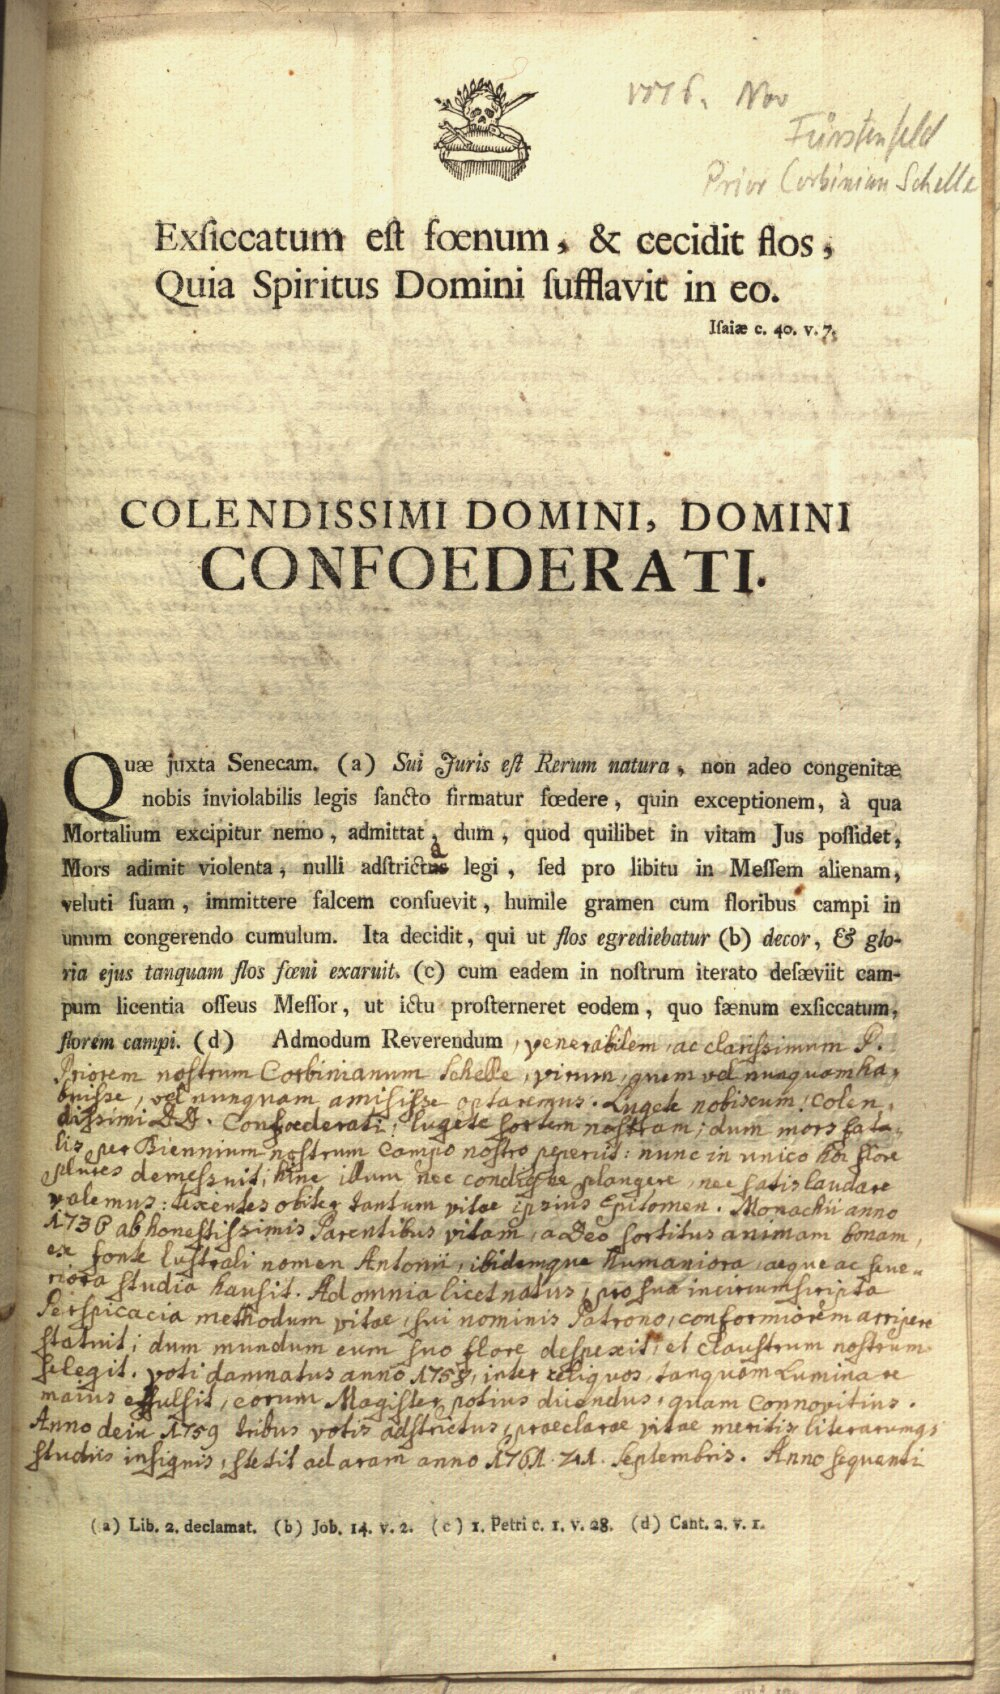 1776. Nov
Fürstenfeld
Prior Corbinian Schelle
Exſiccatum eſt fœnum, & cecidit flos,
Quia Spiritus Domini ſufflavit in eo.
Iſaiæ c. 40. v. 7.
COLENDISSIMI DOMINI, DOMINI
CONFOEDERATI.
Quæ juxta Senecam. (a) Sui Juris eſt Rerum natura, non adeo congenitæ
nobis inviolabilis legis ſancto firmatur fœdere, quin exceptionem, à qua
Mortalium excipitur nemo, admittat, dum, quod quilibet in vitam Jus poſſidet,
Mors adimit violenta, nulli adſtricta legi, ſed pro libitu in Meſſem alienam,
veluti ſuam, immittere falcem conſuevit, humile gramen cum floribus campi in
unum congerendo cumulum. Ita decidit, qui ut flos egrediebatur (b) decor, & glo-
ria ejus tanquam flos fœni exaruit. (c) cum eadem in noſtrum iterato deſæviit cam-
pum licentia oſſeus Meſſor, ut ictu proſterneret eodem, quo fænum exſiccatum,
florem campi. (d) Admodum Reverendum, venerabilem, ac clarissimum P.
Priorem nostrum Corbinianum Schelle, virum, quem vel nunquam ha-
buisse, vel nunquam amisisse optaremus. Lugete nobiscum! Colen-
dissimi DD. Confoederati! lugete sortem nostram; dum mors fata-
lis per Biennium nostrum campo nostro pepercit: nunc in unico hoc flore
plures demessuit; hinc illum nec condigne plangere, nec satis laudare
valemus: texentes obiter tantum vitae ipsius Epitomen. Monachii anno
1736 ab honestissimis Parentibus vitam, a Deo sortitus animam bonam,
ex fonte lustrali nomen Antonii, ibidemque humaniora, aeque ac seve-
riora studia hausit. Ad omnia licet natus, pro sua incircumscripta
Perspicacia methodum vitae, sui nominis Patrono, conformiorem arripere
statuit; dum mundum cum suo flore despexit, et claustrum nostrum
selegit. voti damnatus anno 1758, inter reliquos, tanquam Luminare
maius effulsit, eorum Magister potius dicendus, quam Connovitius.
Anno dein 1759 tribus votis adstrictus, praeclarae vitae meritis literarumqs
studiis insignis, stetit ad aram anno 1761. 21. Septembris. Anno sequenti
(a) Lib. 2. declamat. (b) Job. 14. v. 2. (c) 1. Petri c. 1. v. 28. (d) Cant. 2. v. 1.